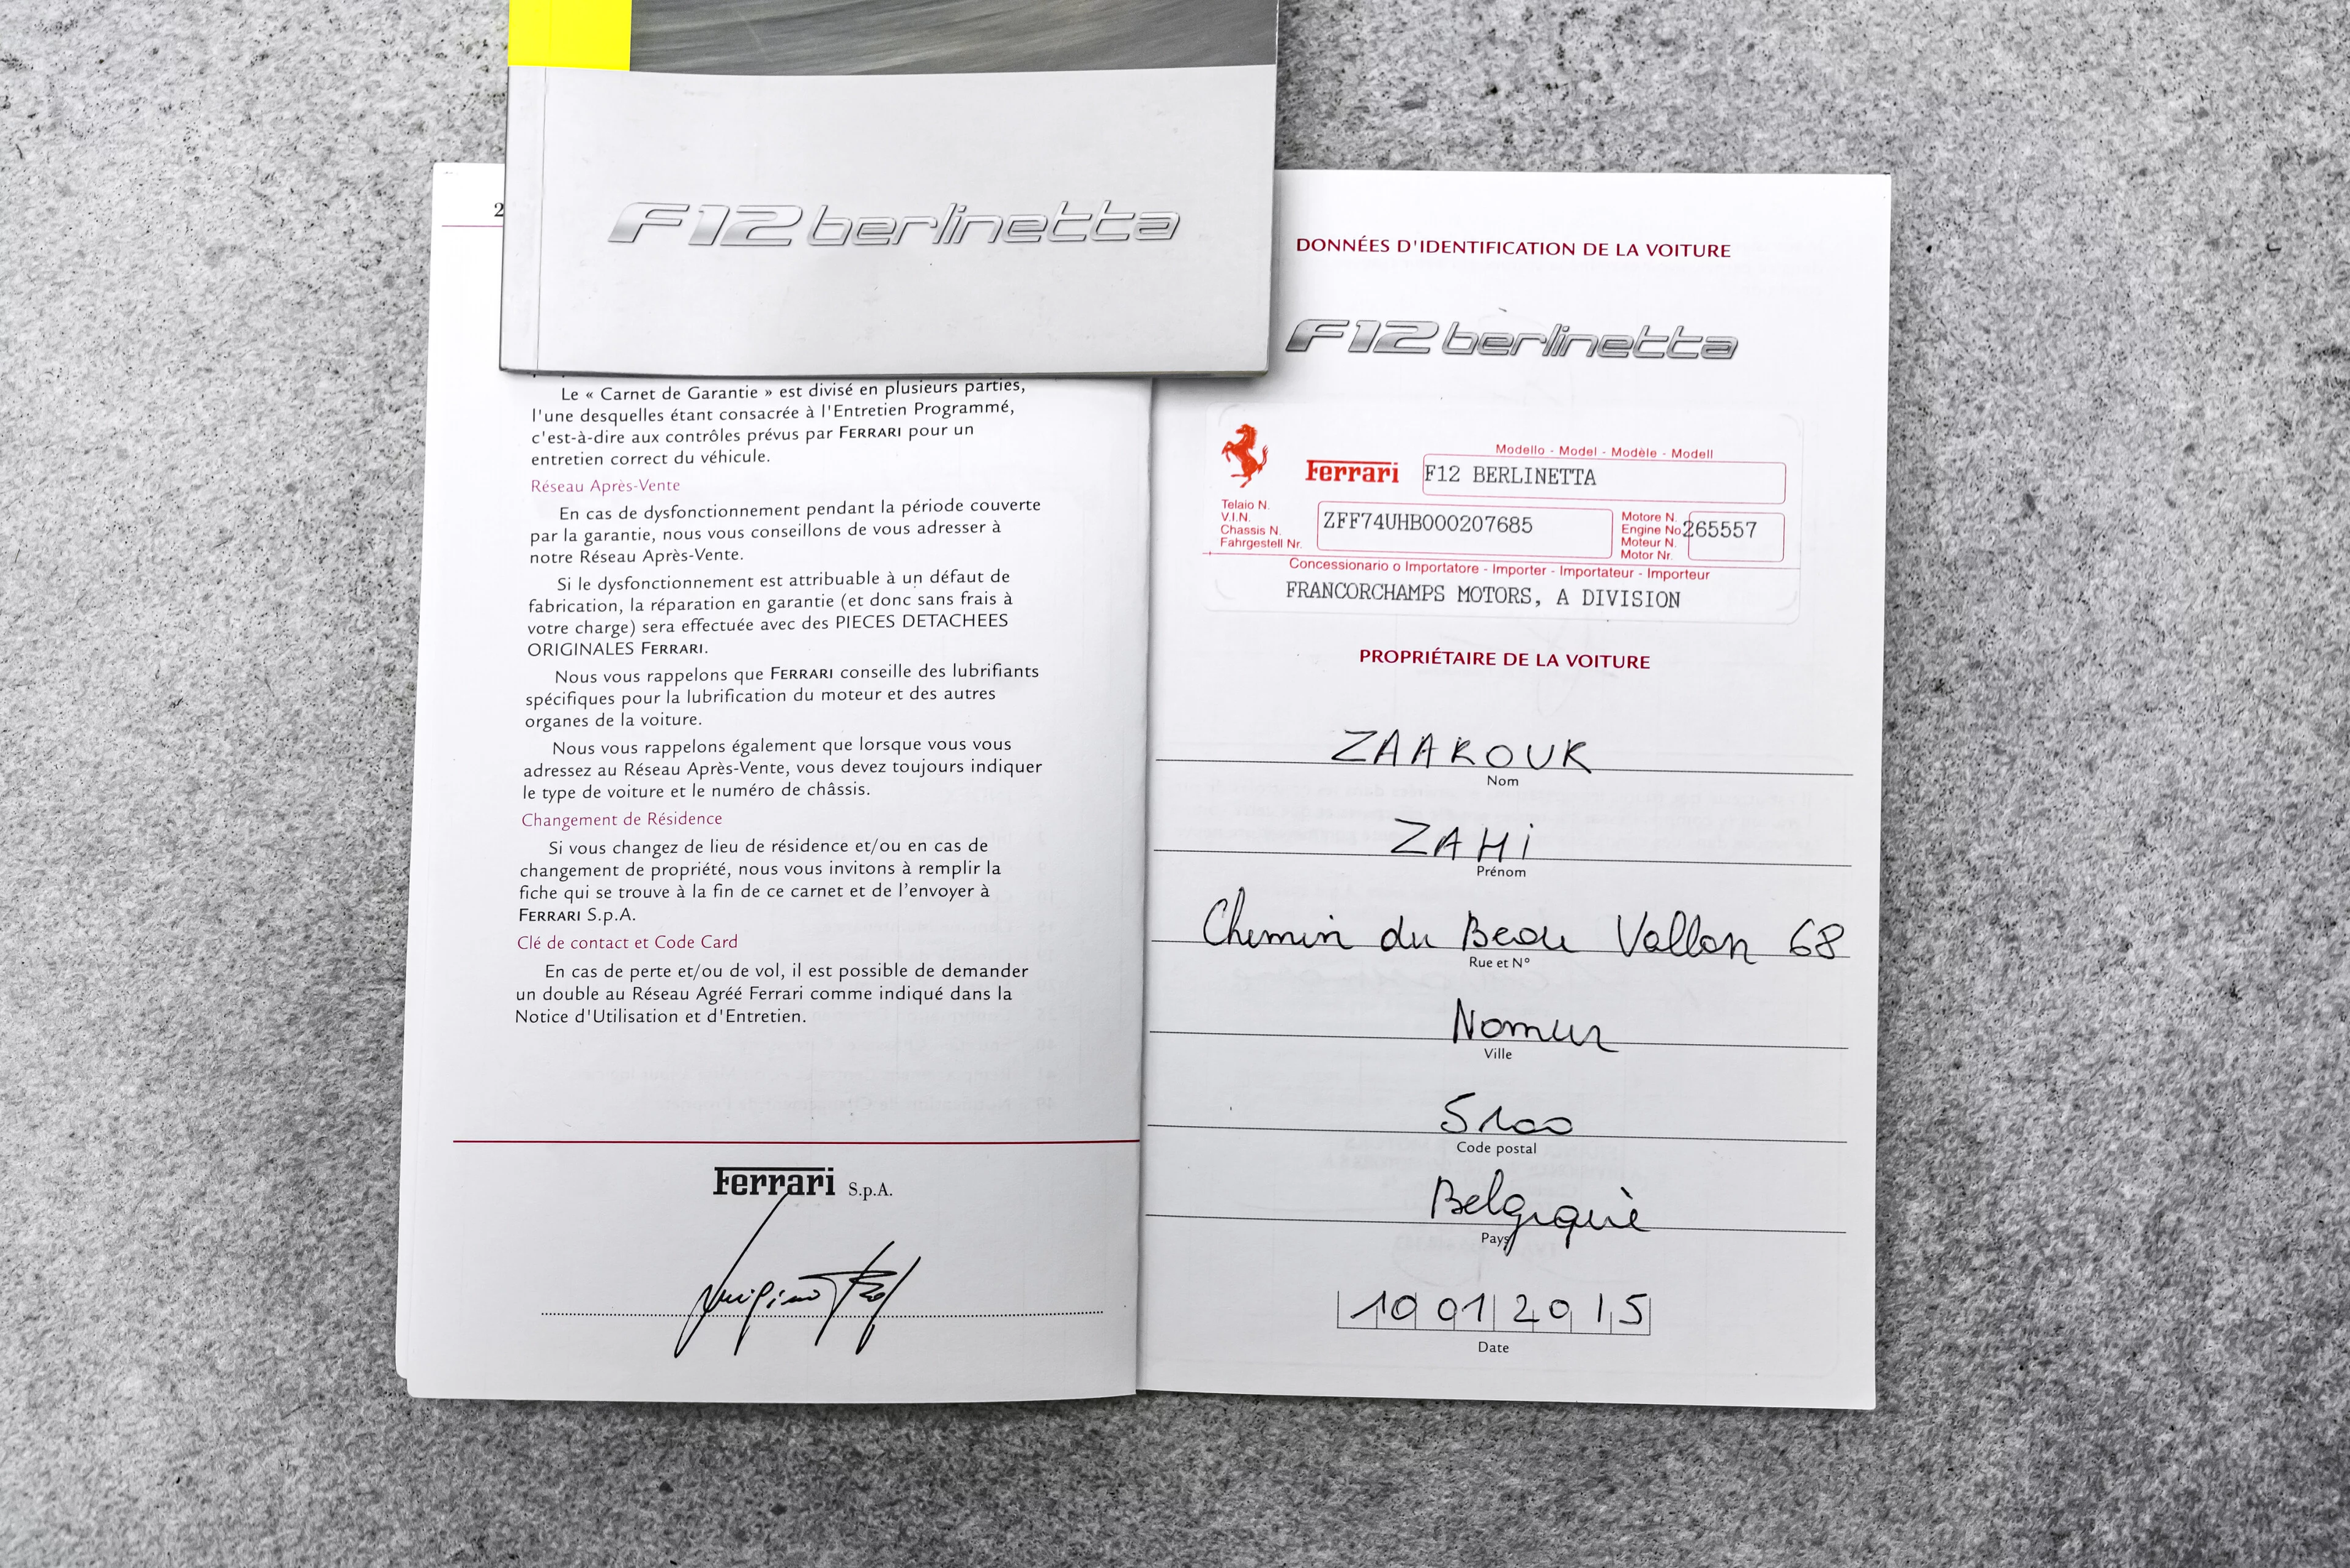 F12berlinetta
2
Le « Carnet de Garantie » est divisé en plusieurs parties,
l'une desquelles étant consacrée à l'Entretien Programmé,
c'est-à-dire aux contrôles prévus par FERRARI pour un
entretien correct du véhicule.
Réseau Après-Vente
En cas de dysfonctionnement pendant la période couverte
par la garantie, nous vous conseillons de vous adresser à
notre Réseau Après-Vente.
Si le dysfonctionnement est attribuable à un défaut de
fabrication, la réparation en garantie (et donc sans frais à
votre charge) sera effectuée avec des PIECES DETACHEES
ORIGINALES FERRARI.
Nous vous rappelons que FERRARI conseille des lubrifiants
spécifiques pour la lubrification du moteur et des autres
organes de la voiture.
Nous vous rappelons également que lorsque vous vous
adressez au Réseau Après-Vente, vous devez toujours indiquer
le type de voiture et le numéro de châssis.
Changement de Résidence
Si vous changez de lieu de résidence et/ou en cas de
changement de propriété, nous vous invitons à remplir la
fiche qui se trouve à la fin de ce carnet et de l'envoyer à
FERRARI S.p.A.
Clé de contact et Code Card
En cas de perte et/ou de vol, il est possible de demander
un double au Réseau Agréé Ferrari comme indiqué dans la
Notice d'Utilisation et d'Entretien.
Ferrari S.p.A.
DONNÉES D'IDENTIFICATION DE LA VOITURE
F12berlinetta
Modello - Model - Modèle - Modell
Ferrari F12 BERLINETTA
Telaio N.
V.I.N.
Chassis N.
Fahrgestell Nr.
ZFF74UHB000207685
Motore N.
Engine No
Moteur N.
Motor Nr.
265557
Concessionario o Importatore - Importer - Importateur - Importeur
FRANCORCHAMPS MOTORS, A DIVISION
PROPRIÉTAIRE DE LA VOITURE
ZAAROUR
Nom
ZAHi
Prénom
Chemin du Beau Vallon 68
Rue et N°
Namur
Ville
5100
Code postal
Belgique
Pays
10 01 2015
Date